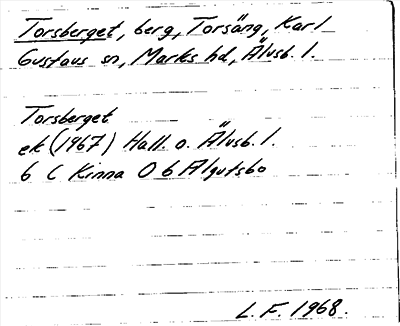 Torsberget, berg, Torsäng, Karl
Gustavs sn, Marks hd, Älvsb. l.
Torsberget
ek (1967) Hall. o. Älvsb. l.
6 C Kinna 0 b Älgutsbo
L. F. 1968.